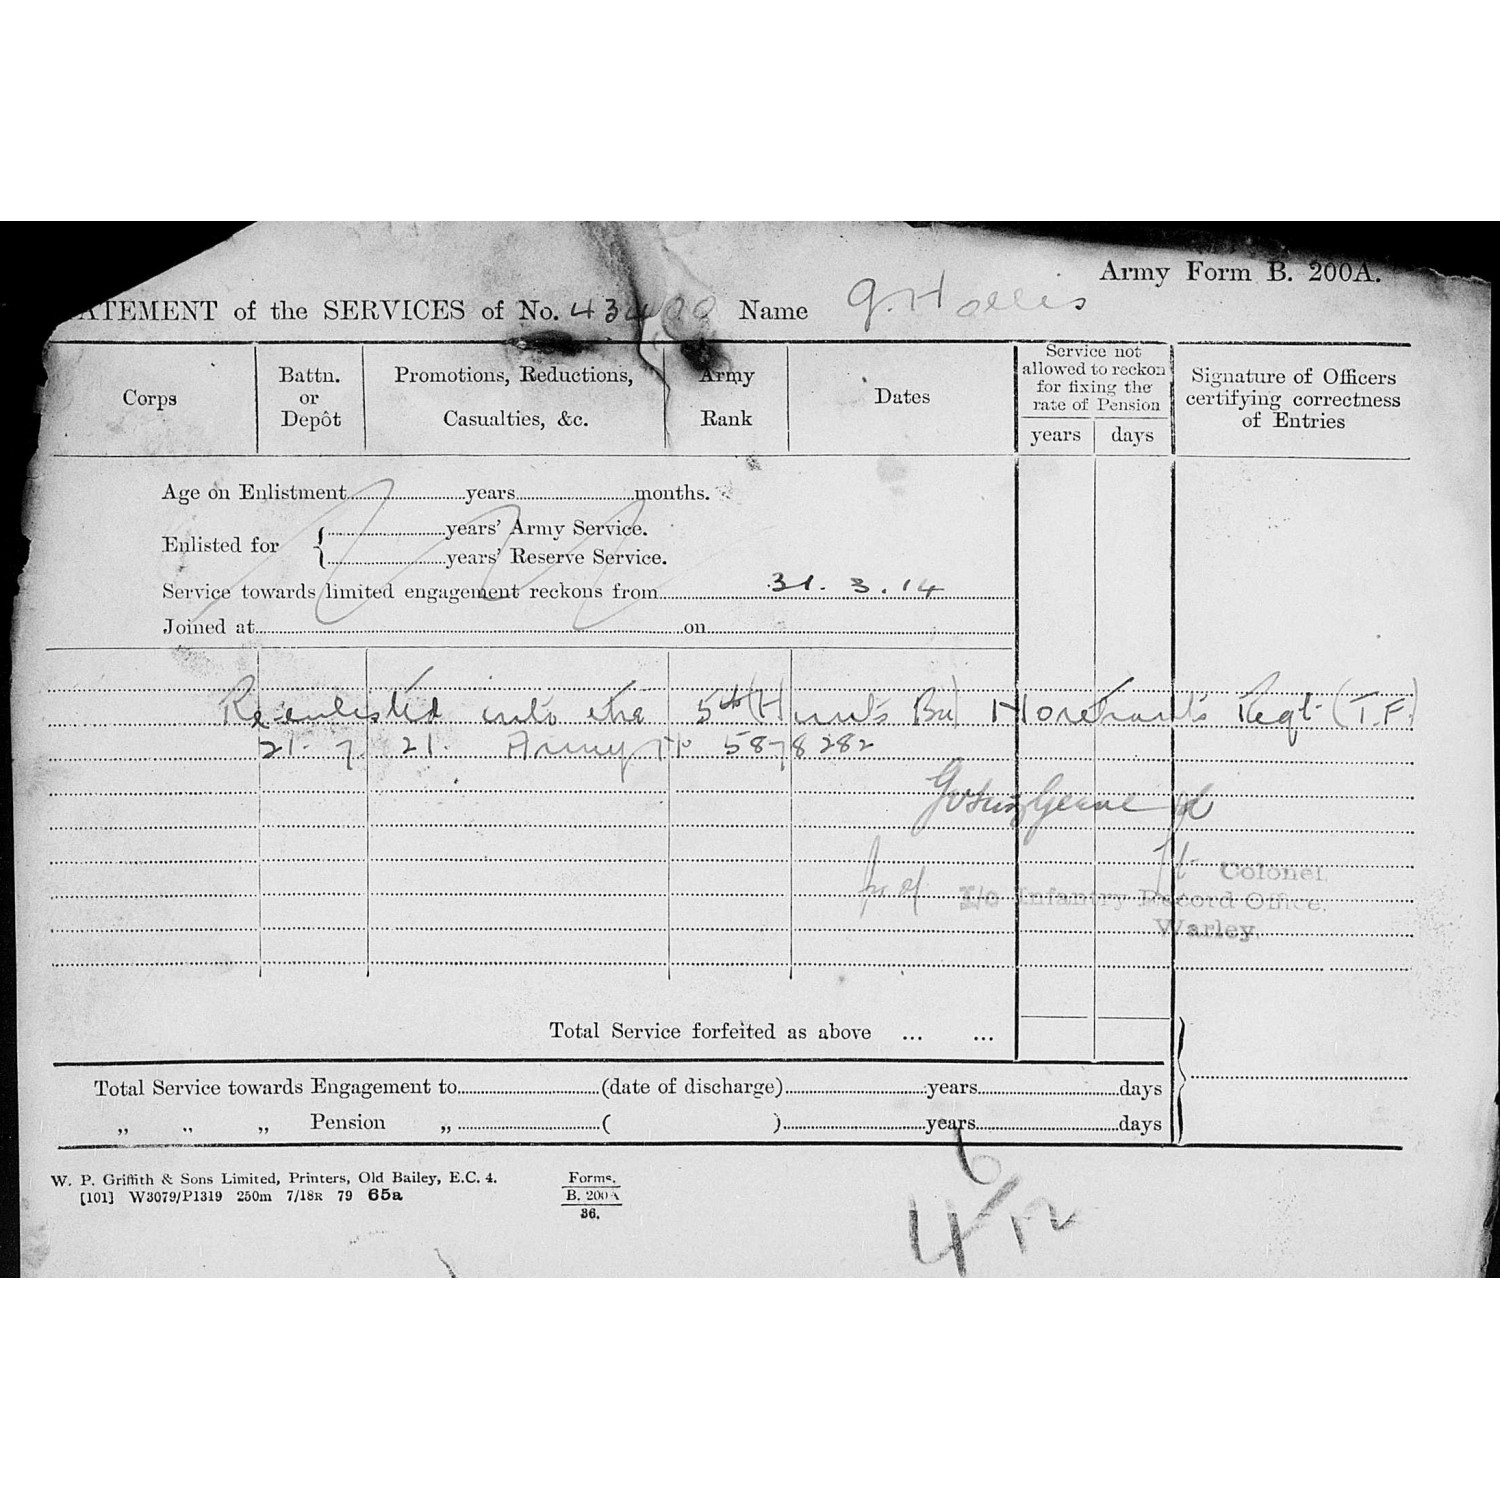 Army Form B. 200A.
ATEMENT of the SERVICES of No. 43400 Name G. Hollis
Corps
Battn. or Depôt
Promotions, Reductions, Casualties, &c.
Army Rank
Dates
Service not allowed to reckon for fixing the rate of Pension
years days
Signature of Officers certifying correctness of Entries
Age on Enlistment years months.
Enlisted for years' Army Service.
years' Reserve Service.
Service towards limited engagement reckons from 31. 3. 14
Joined at on
Re-enlisted into the 5th (Hunts Bn) Northants Regt (T.F.)
21. 7. 21. Army No 5878282
Lt. Colonel,
for I/c Infantry Record Office,
Warley.
Total Service forfeited as above ... ...
Total Service towards Engagement to (date of discharge) years days
„ „ „ Pension „ ( ) years days
W. P. Griffith & Sons Limited, Printers, Old Bailey, E.C. 4.
[101] W3079/P1319 250m 7/18R 79 65a
Forms.
B. 200A
36.
6
4/12